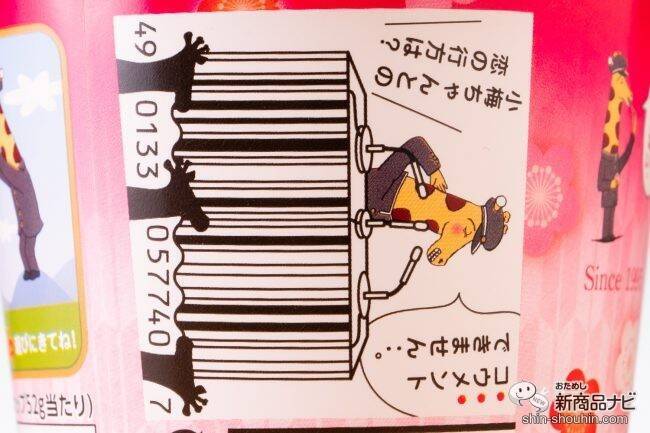 小梅ちゃんとの
恋の行方は?
コウメント
できません…。
49 0133 057740 7
遊びにきてね!
プ52g当たり)
Since
おためし
新商品ナビ
shin-shouhin.com